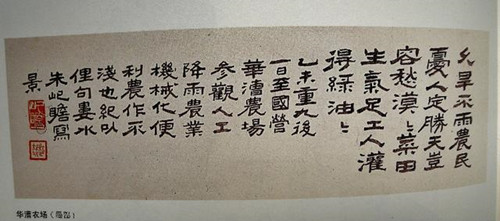 久旱不雨農民
憂人定勝天豈
容愁漠〻菜田
生氣足工人灌
得綠油〻
乙未重九後
一日至國營
華漕農場
參觀人工
降雨農業
機械化便
利農作不
淺也紀以
俚句婁水
朱屺瞻寫
景
华漕农场